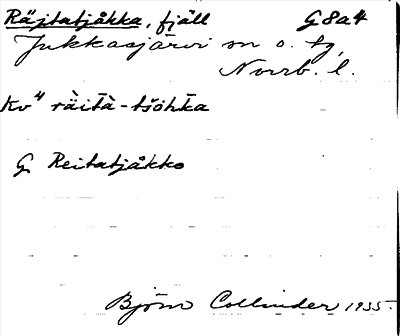 Räjtatjåkka, fjäll G8a4
Jukkasjärvi sn o. tg,
Norrb. l.
Kv⁴ ràità-tšòhka
G Reitatjåkko
Björn Collinder 1935.